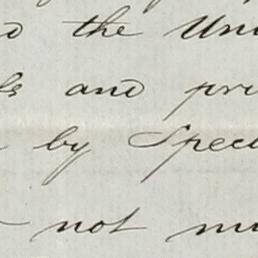 the Uni
and pri
by Spec
not mu